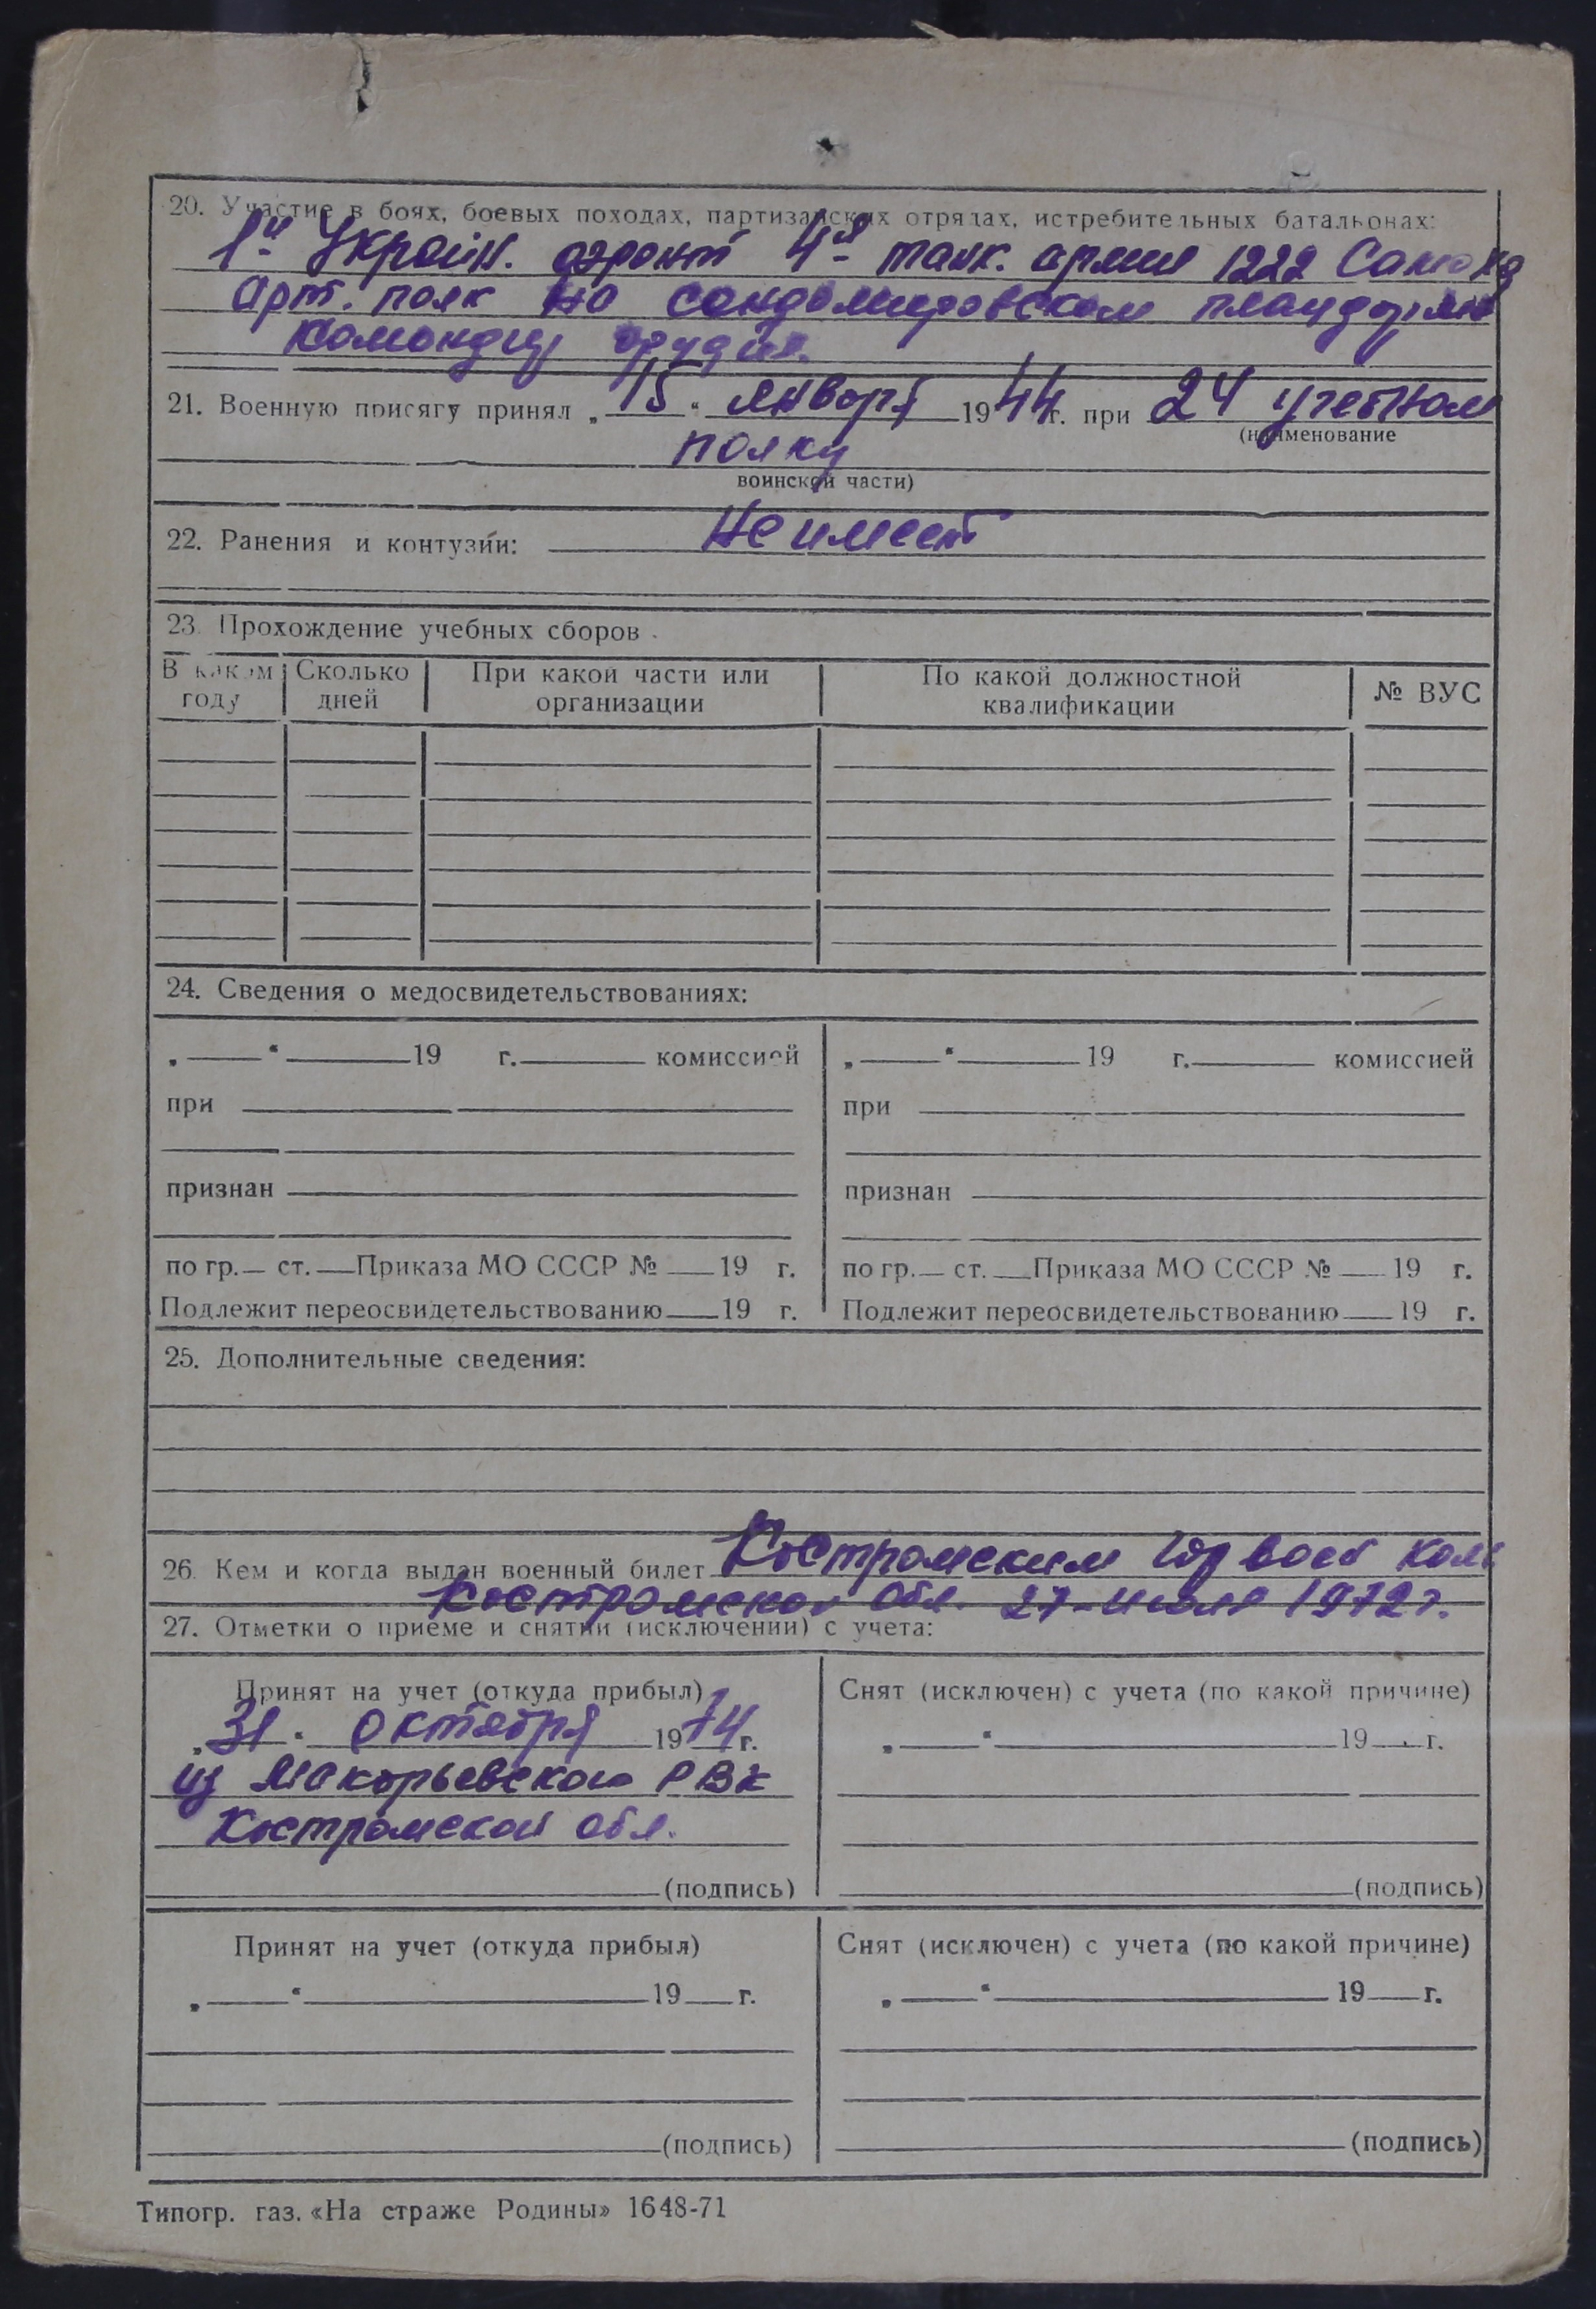 20. Участие в боях, боевых походах, партизанских отрядах, истребительных батальонах:
1й Украін. фронт 4я танк. армия 1222 Самохд
Арт. полк на сандомировском плацдарме
командир орудия.
21. Военную присягу принял „15“ января 1944 г. при 24 учетном
(наименование
полку
воинской части)
22. Ранения и контузии: Не имеет
23. Прохождение учебных сборов
В каком году Сколько дней При какой части или организации По какой должностной квалификации № ВУС
24. Сведения о медосвидетельствованиях:
„ “ 19 г. комиссией „ “ 19 г. комиссией
при при
признан признан
по гр. ст. Приказа МО СССР № 19 г. по гр. ст. Приказа МО СССР № 19 г.
Подлежит переосвидетельствованию 19 г. Подлежит переосвидетельствованию 19 г.
25. Дополнительные сведения:
26. Кем и когда выдан военный билет Костромским Гор воен ком
Костромской обл. 27-июля 1972 г.
27. Отметки о приеме и снятии (исключении) с учета:
Принят на учет (откуда прибыл) Снят (исключен) с учета (по какой причине)
„31“ октября 1974 г. „ “ 19 г.
из Макарьевского РВК
Костромской обл.
(подпись) (подпись)
Принят на учет (откуда прибыл) Снят (исключен) с учета (по какой причине)
„ “ 19 г. „ “ 19 г.
(подпись) (подпись)
Типогр. газ. «На страже Родины» 1648-71